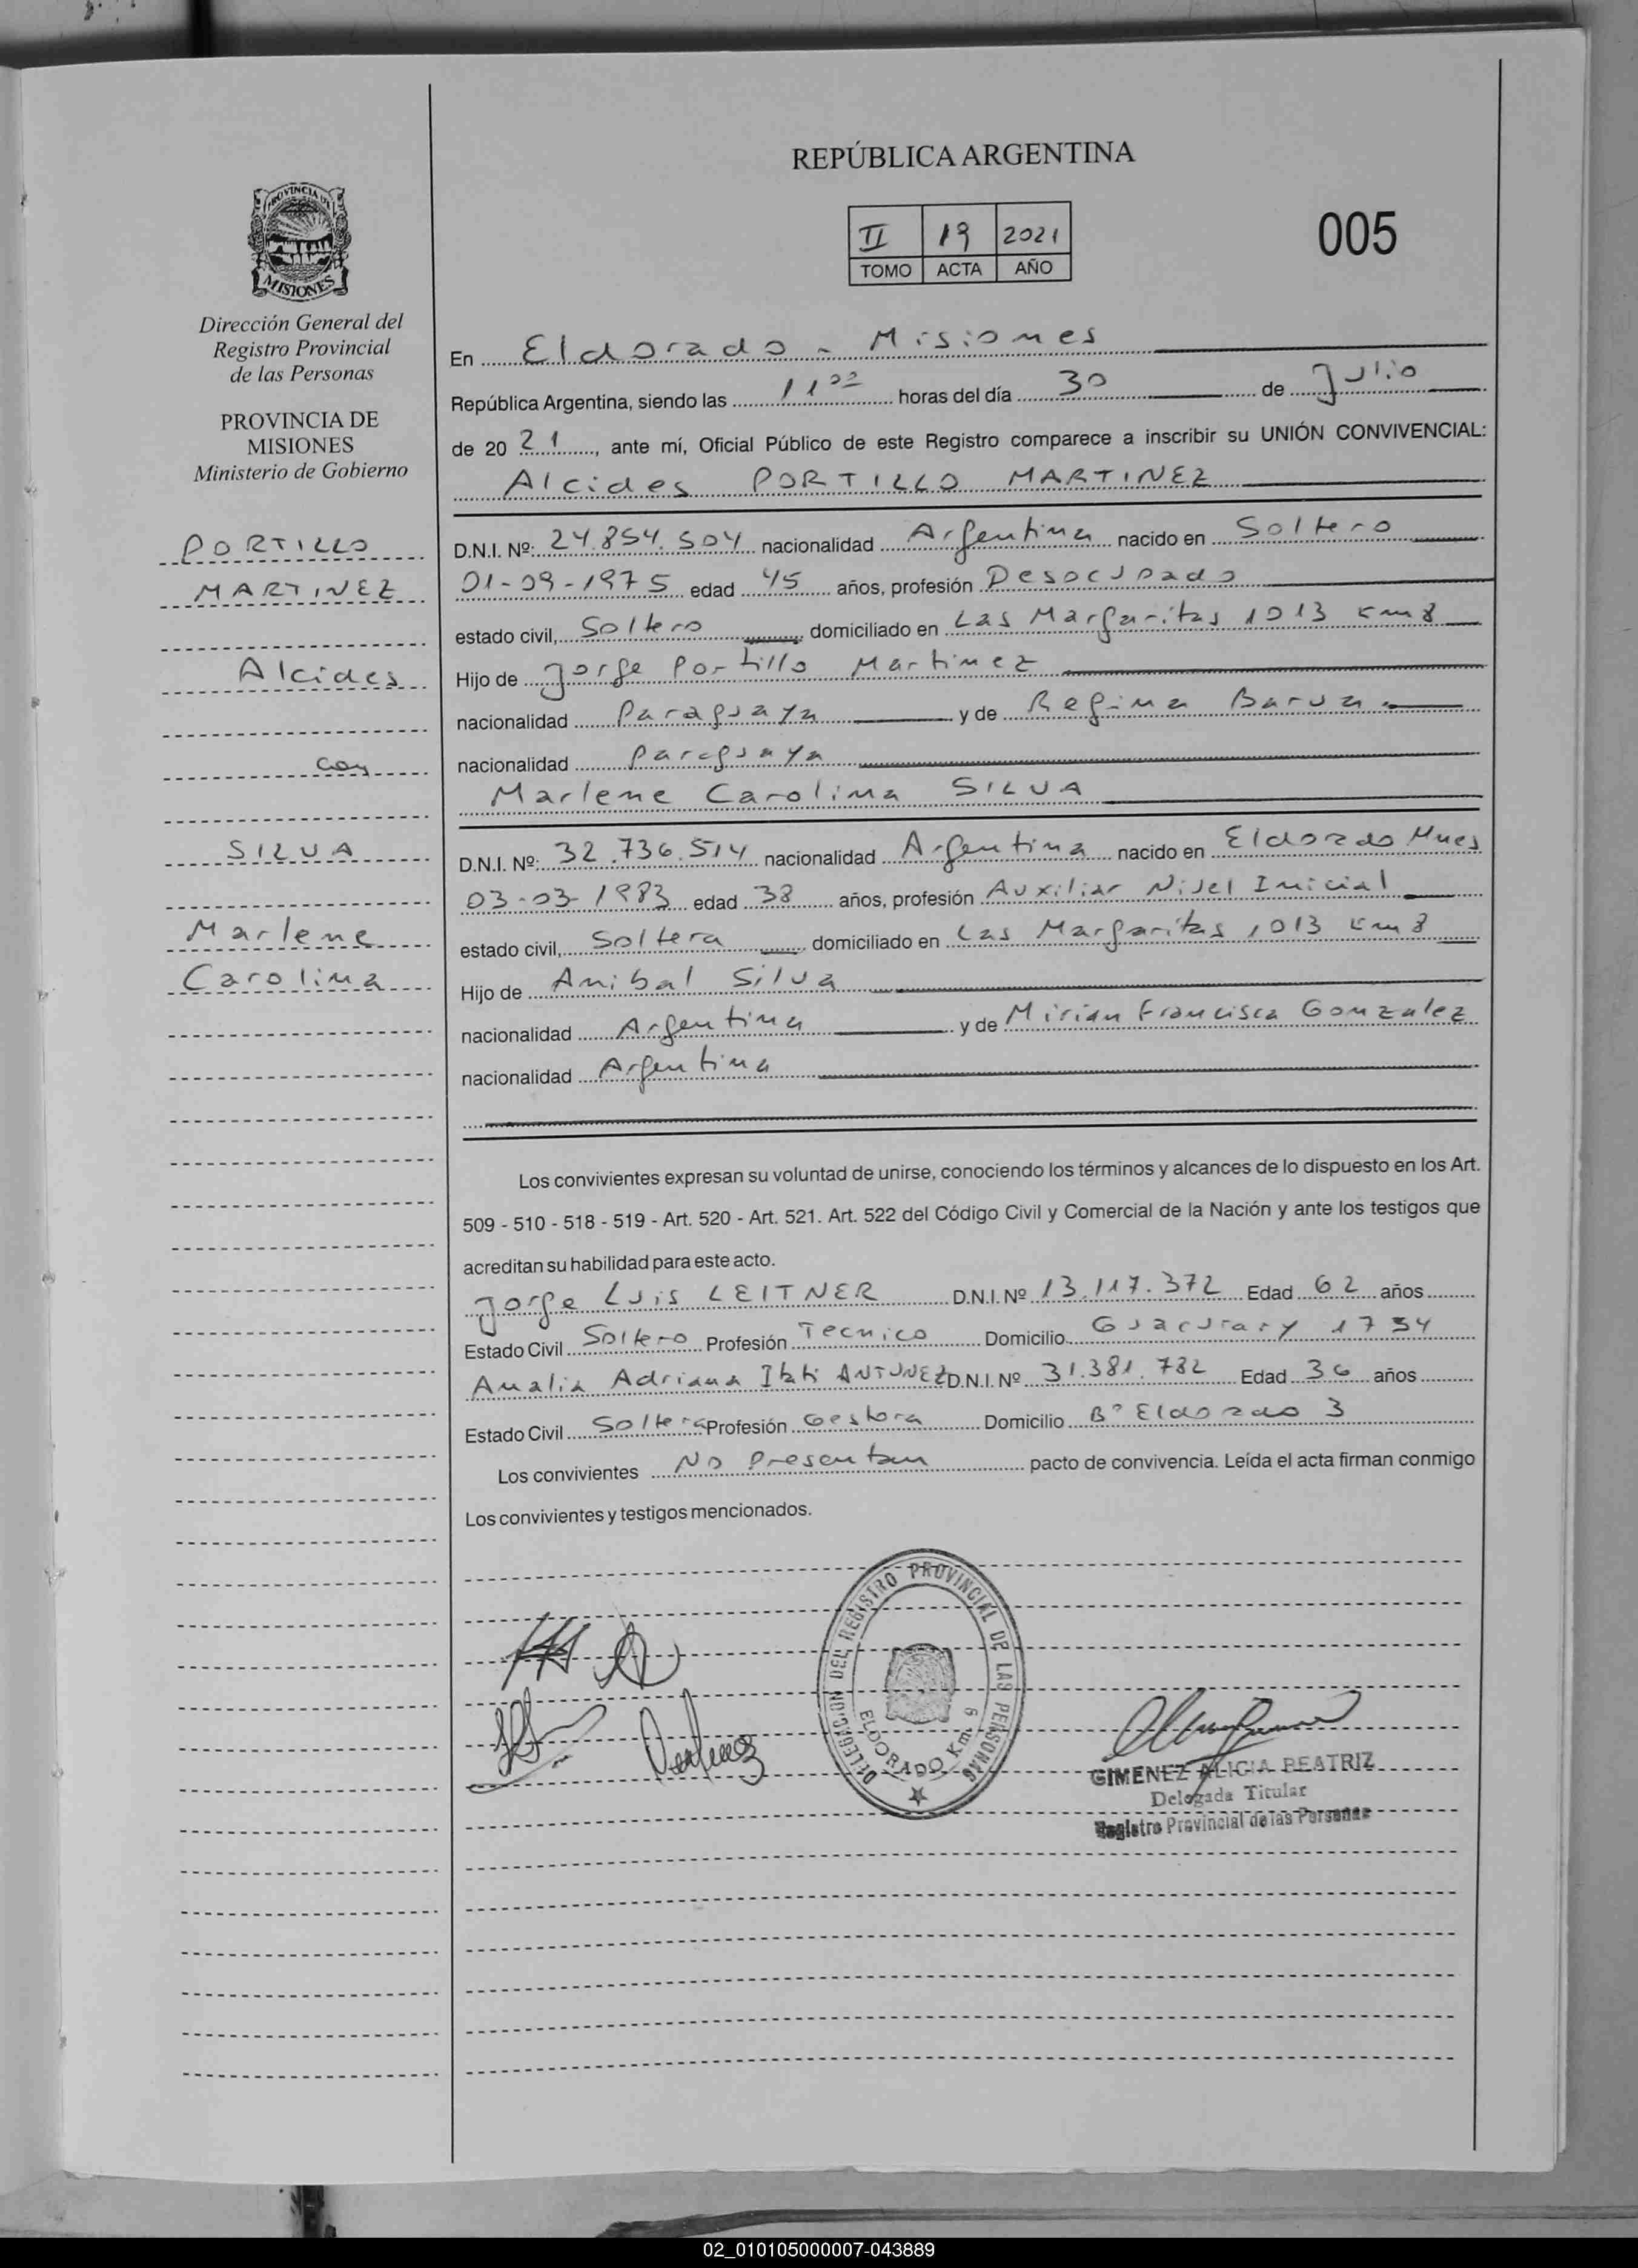 REPÚBLICA ARGENTINA
PROVINCIA DE
MISIONES
II 19 2021
TOMO ACTA AÑO
005
Dirección General del
Registro Provincial
de las Personas
PROVINCIA DE
MISIONES
Ministerio de Gobierno
PORTILLO
MARTINEZ
Alcides
con
SILVA
Marlene
Carolina
En Eldorado - Misiones
República Argentina, siendo las 11 00 horas del día 30 de Julio
de 20 21, ante mí, Oficial Público de este Registro comparece a inscribir su UNIÓN CONVIVENCIAL:
Alcides PORTILLO MARTINEZ
D.N.I. Nº: 24.854.504 nacionalidad Argentina nacido en Soltero
01-09-1975 edad 45 años, profesión Desocupado
estado civil, Soltero domiciliado en Las Margaritas 1013 Km 8
Hijo de Jorge Portillo Martinez
nacionalidad Paraguaya y de Regina Barua
nacionalidad Paraguaya
Marlene Carolina SILVA
D.N.I. Nº: 32.736.514 nacionalidad Argentina nacido en Eldorado Mnes
03-03-1983 edad 38 años, profesión Auxiliar Nivel Inicial
estado civil, Soltera domiciliado en Las Margaritas 1013 Km 8
Hijo de Anibal Silva
nacionalidad Argentina y de Mirian Francisca Gonzalez
nacionalidad Argentina
Los convivientes expresan su voluntad de unirse, conociendo los términos y alcances de lo dispuesto en los Art.
509 - 510 - 518 - 519 - Art. 520 - Art. 521. Art. 522 del Código Civil y Comercial de la Nación y ante los testigos que
acreditan su habilidad para este acto.
Jorge Luis LEITNER D.N.I. Nº 13.117.372 Edad 62 años
Estado Civil Soltero Profesión Tecnico Domicilio Guacurary 1734
Analia Adriana Itati ANTUNEZ D.N.I. Nº 31.381.782 Edad 36 años
Estado Civil Soltera Profesión Gestora Domicilio Bº Eldorado 3
Los convivientes No Presentan pacto de convivencia. Leída el acta firman conmigo
Los convivientes y testigos mencionados.
DELEGACION DEL REGISTRO PROVINCIAL DE LAS PERSONAS
ELDORADO Km. 9
GIMENEZ ALICIA BEATRIZ
Delegada Titular
Registro Provincial de las Personas
02_010105000007-043889